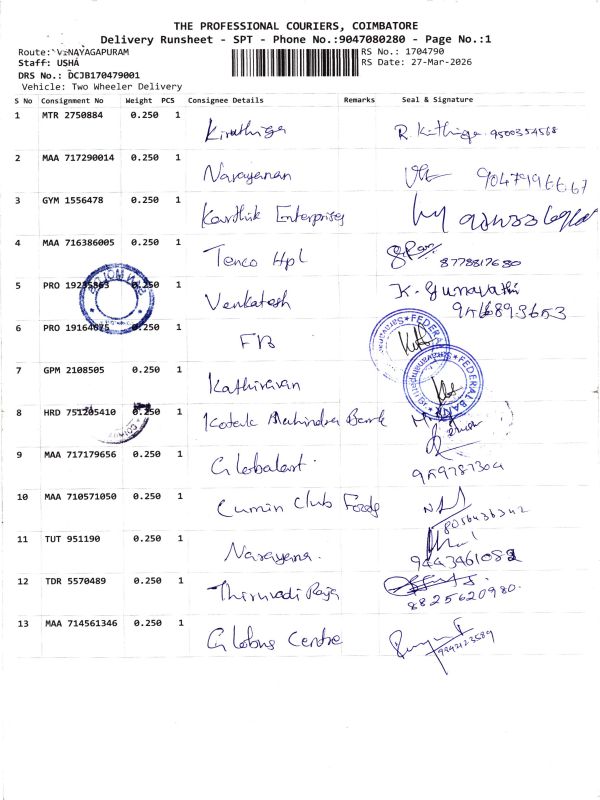 THE PROFESSIONAL COURIERS, COIMBATORE
Delivery Runsheet - SPT - Phone No.:9047080280 - Page No.:1
Route: VINAYAGAPURAM RS No.: 1704790
Staff: USHA RS Date: 27-Mar-2026
DRS No.: DCJB170479001
Vehicle: Two Wheeler Delivery
S No Consignment No Weight PCS Consignee Details Remarks Seal & Signature
1 MTR 2750884 0.250 1 Kiruthiga R. Kiruthiga 9500354568
2 MAA 717290014 0.250 1 Narayanan
3 GYM 1556478 0.250 1 Karthik Enterprises
4 MAA 716386005 0.250 1 Tenco Hpl 8778817680
5 PRO 19235863 0.250 1 Venkatesh K. Gunavathi
6 PRO 19164675 0.250 1 FB
FEDERAL
FEDERAL BANK
7 GPM 2108505 0.250 1 Kathiravan
8 HRD 751205410 0.250 1 Kotak Mahindra Bank
9 MAA 717179656 0.250 1 Globalart. 9597871304
10 MAA 710571050 0.250 1 Cumin Club Foods 8056436342
11 TUT 951190 0.250 1 Narayana.
12 TDR 5570489 0.250 1 Thiruvadi Raja 8825620980.
13 MAA 714561346 0.250 1 Globus Centre